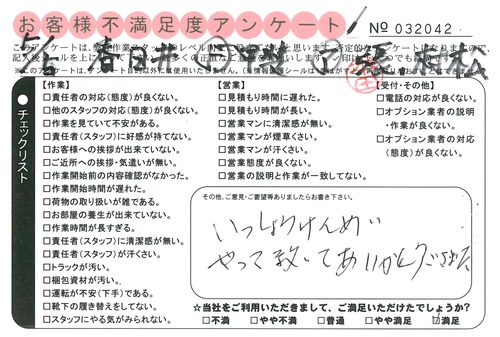 お客様不満足度アンケート
No 032042
【作業】
□責任者の対応(態度)が良くない。
□他のスタッフの対応(態度)が良くない。
□作業を見ていて不安がある。
□責任者(スタッフ)に好感が持てない。
□お客様への挨拶が出来ていない。
□ご近所への挨拶・気遣いが無い。
□作業開始前の内容確認がなかった。
□作業開始時間が遅れた。
□荷物の取り扱いが雑である。
□お部屋の養生が出来ていない。
□作業時間が長すぎる。
□責任者(スタッフ)に清潔感が無い。
□責任者(スタッフ)が汗くさい。
□トラックが汚い。
□梱包資材が汚い。
□運転が不安(下手)である。
□靴下の履き替えをしてない。
□スタッフにやる気がみられない。
【営業】
□見積もり時間に遅れた。
□見積もり時間が長い。
□営業マンに清潔感が無い。
□営業マンが煙草くさい。
□営業マンが汗くさい。
□営業態度が良くない。
□営業の説明と作業が一致してない。
【受付・その他】
□電話の対応が良くない。
□オプション業者の説明
・作業が良くない。
□オプション業者の対応
(態度)が良くない。
チェックリスト
その他、ご意見・ご要望等ありましたらお書き下さい。
いっしょうけんめい
やって頂いてありがとうございました
☆当社をご利用いただきまして、ご満足いただけたでしょうか?
□不満 □やや不満 □普通 □やや満足 ☑満足